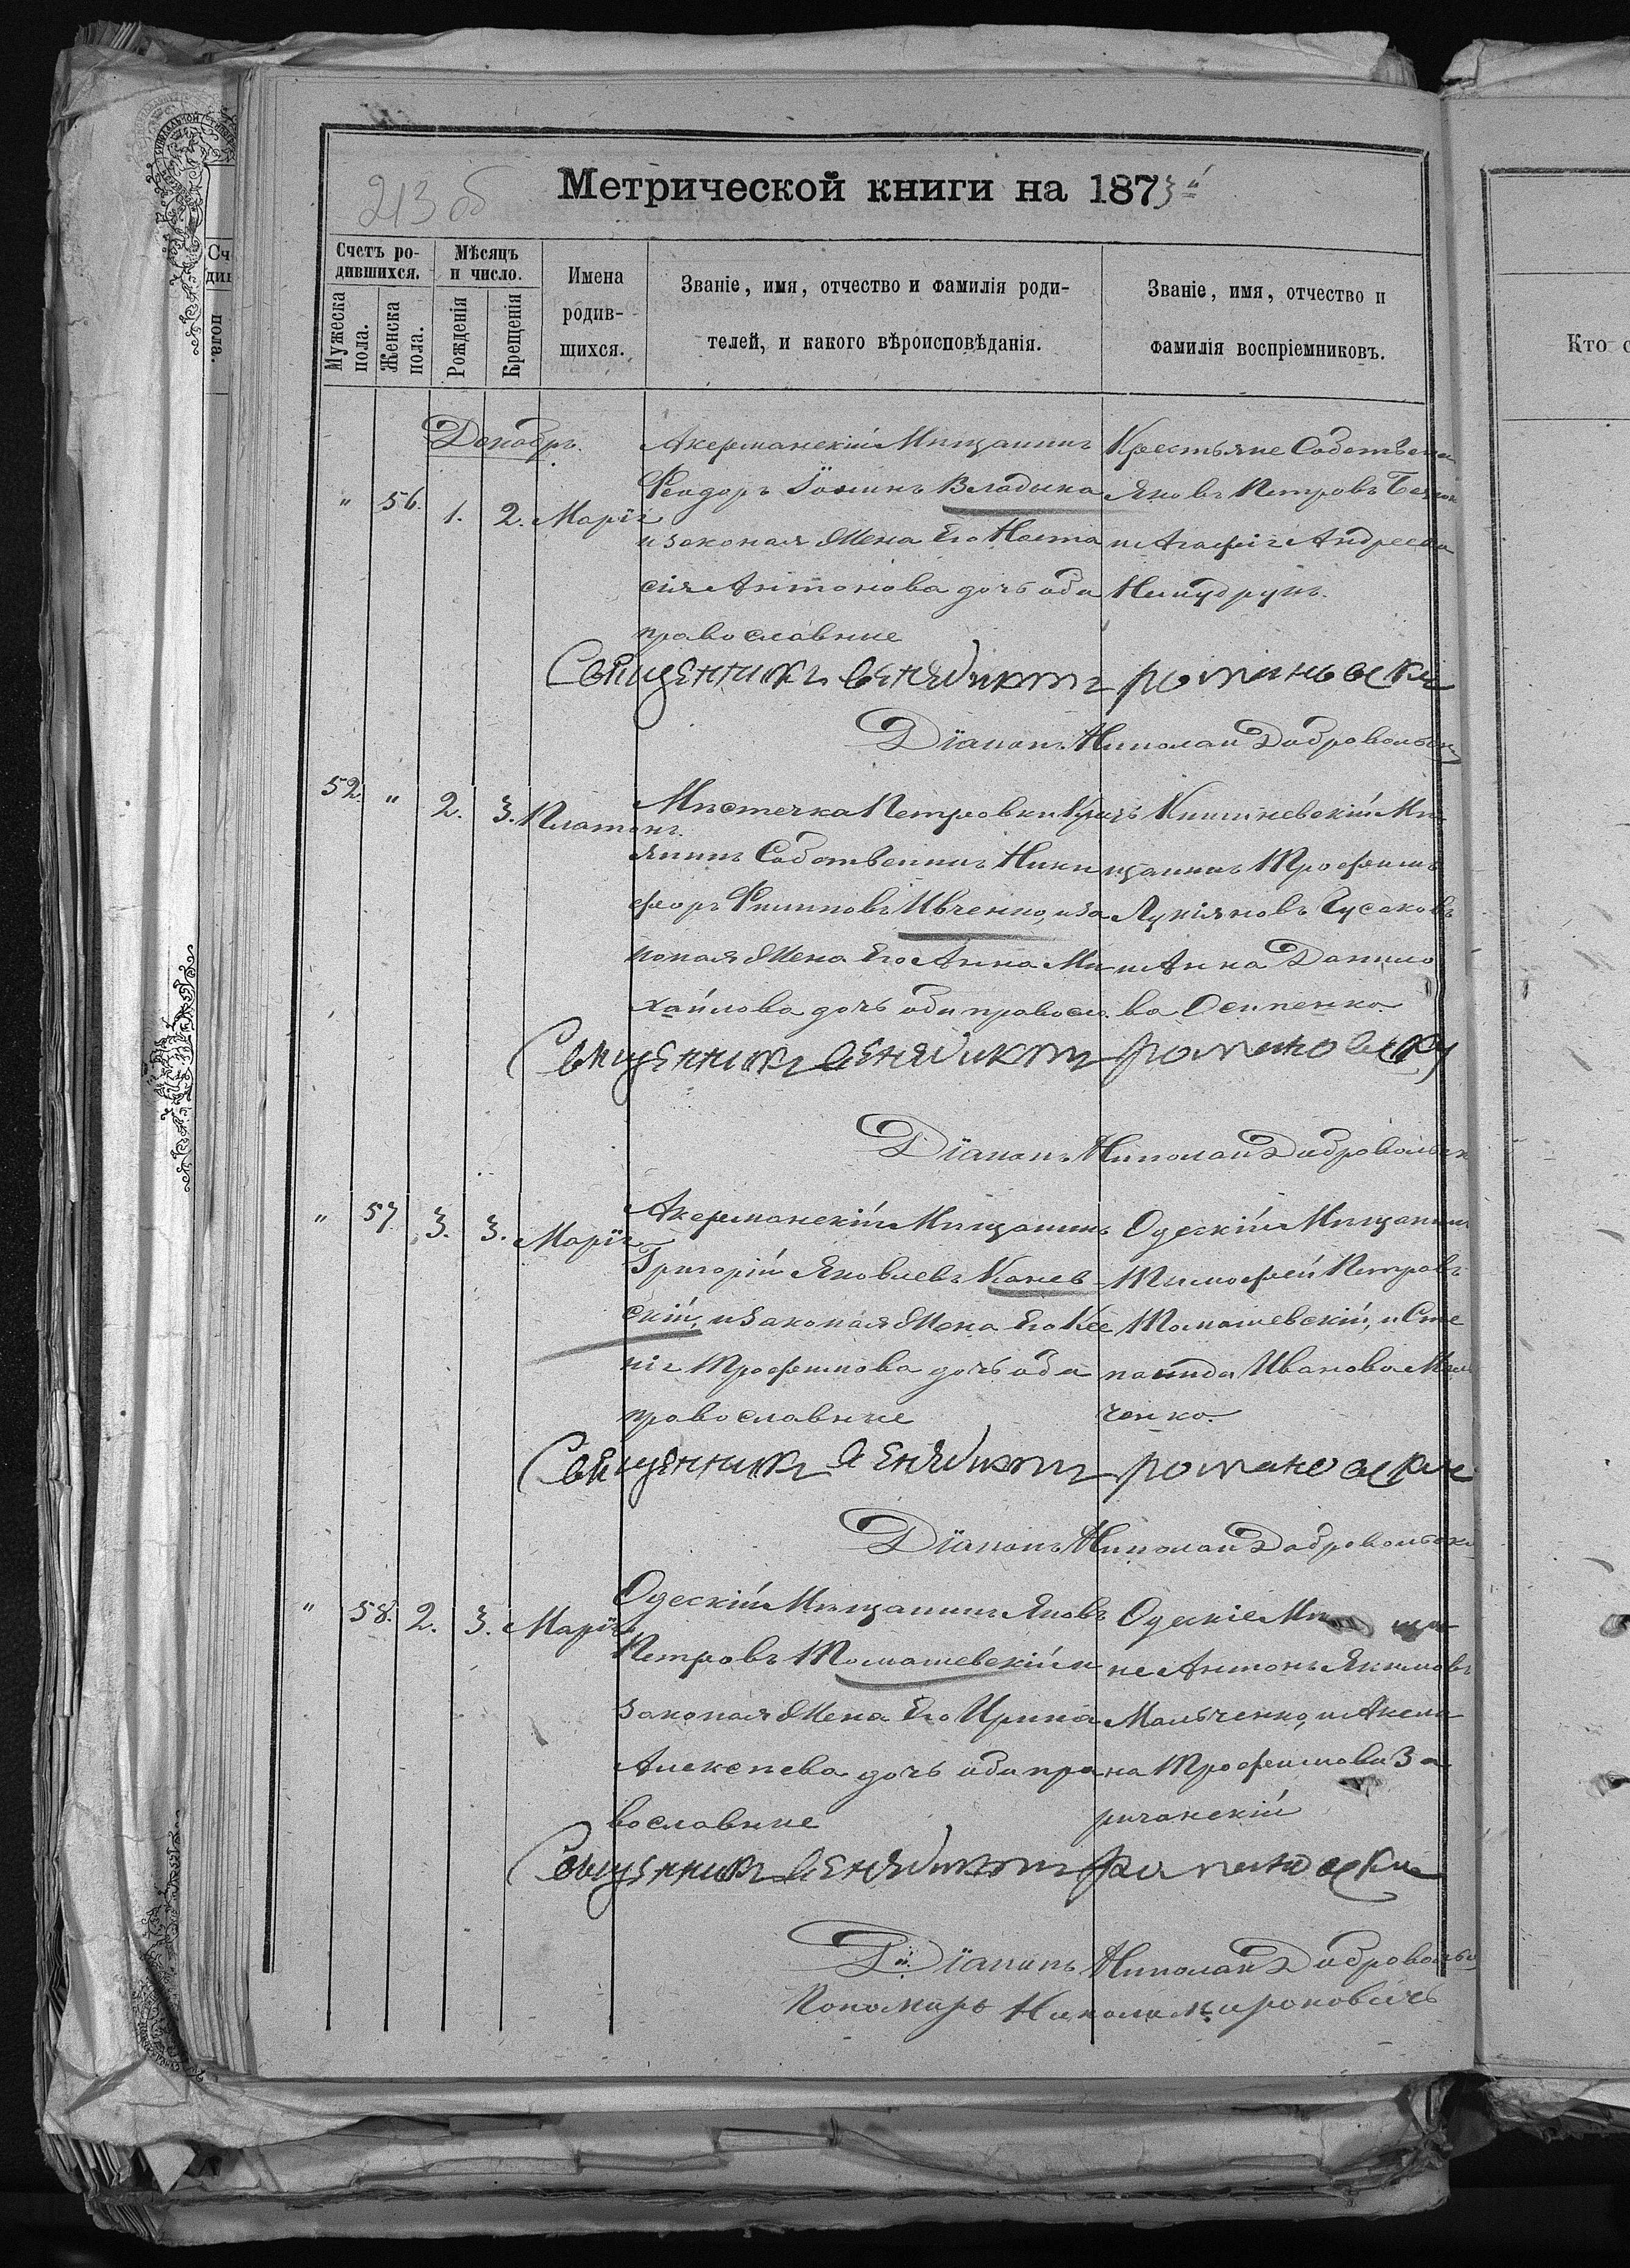 213 об
Метрической книги на 1873й
Счетъ ро-
дившихся.
Мѣсяцъ
и число.
Имена
родив-
шихся.
Званіе, имя, отчество и фамилія роди-
телей, и какого вѣроисповѣданія.
Званіе, имя, отчество и
фамилія воспріемниковъ.
Мужеска
пола.
Женска
пола.
Рожденія
Крещенія
Кто
Декабрь.
" 56. 1. 2. Марія
Акерманскій Мищанинъ
Феодоръ Іоанинъ Владыка
и законая Жена Его Наста
сія Антонова дочь оба
православние
Крестьяне Собствени
Яковъ Петровъ
и Агафія Андреева
Священникъ Венядиктъ Романовски
Діаконъ Николай Добровольск
52. " 2. 3. Платонъ
Мистечка Петровки Крить
янинъ Собственикъ Ники
форъ Филиповъ Ивченко, и за
коная Жена Его Анна Ми
хайлова дочь оби правосл.
Кишиневскій Ми
щанинъ Трофимъ
Лукіяновъ Гусаковъ
и Анна Данило
ва Осипенко
Священникъ Венядиктъ Романовски
Діаконъ Николай Добровольск
" 57 3. 3. Марія
Акерманскій Мищанинъ
Григорій Яковлевъ Канев
скій, и законая Жена Его Ксе
нія Трофимова дочь оба
православние
Одескій Мищанинъ
Тимофей Петровъ
Томашевскій, и Сте
панида Иванова Маль
ченко.
Священникъ Венядиктъ Романовски
Діаконъ Николай Добровольск
" 58. 2. 3. Марія
Одескій Мищанинъ Яковъ
Петровъ Томашевскій и
законая Жена Его Ирина
Алексѣева дочь оби пра
вославние
Одескіе Ми ща
не Антонъ Якимовъ
Мальченко, и Аксе
на Трофимова За
ричанскій
Священникъ Венядиктъ Романовски
Діаконъ Николай Добровольск
Пономарь Николай Мироновичъ